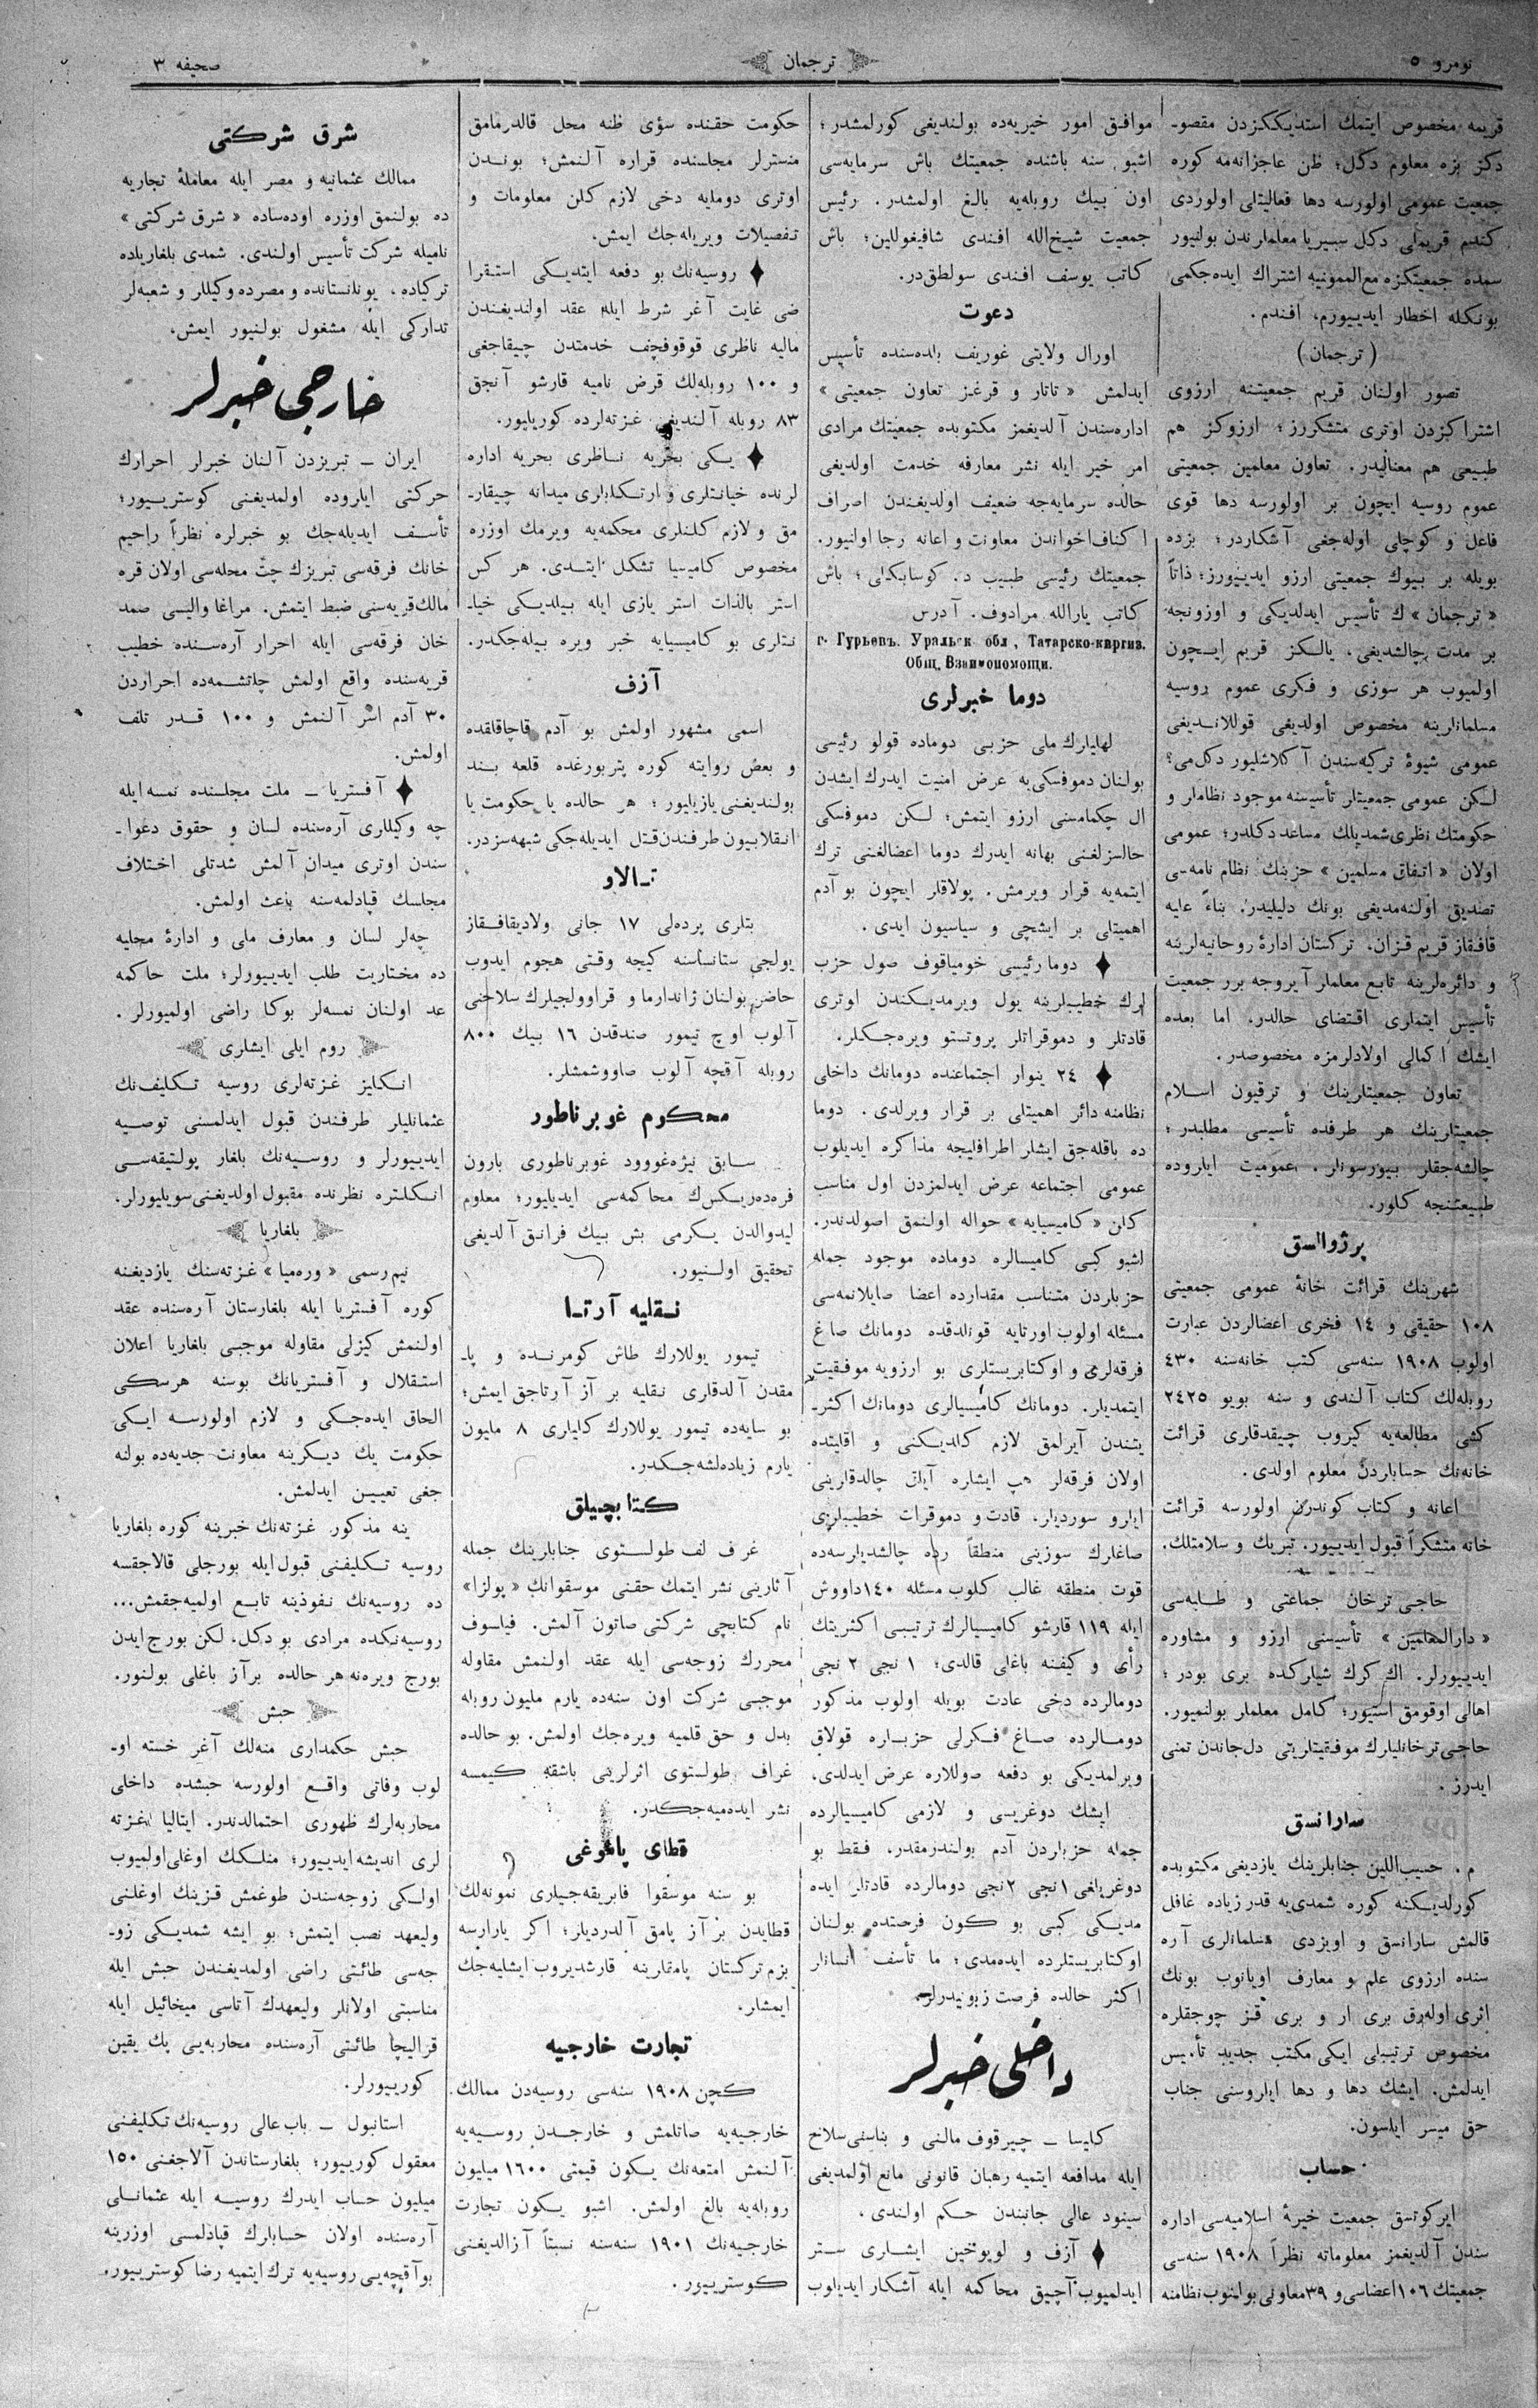 نومرو ٥
ترجمان
صحیفه ٣
قریمه مخصوص ایتمك استدیککزدن مقصو-
دکز بزه معلوم دکل؛ ظن عاجزانه‌مه کوره
جمعیت عمومی اولورسه دها فعالیتلی اولوردی
کندم قریملی دکل سبیریا معلملرندن بولنیور
سمده جمعیتکزه مع‌الممونیه اشتراك ایده‌جکمی
بونکله اخطار ایدییورم، افندم.
(ترجمان)
تصور اولنان قریم جمعیتنه ارزوی
اشتراکزدن اوتری متشکرز؛ ارزوکز هم
طبیعی هم معنالیدر. تعاون معلمین جمعیتی
عموم روسیه ایچون بر اولورسه دها قوی
فاعل و کوچلی اوله‌جغی آشکاردر؛ بزده
بویله بر بیوك جمعیتی ارزو ایدییورز؛ ذاتاً
«ترجمان» ك تأسیس ایدلدیکی و اوزونجه
بر مدت چالشدیغی، یالکز قریم ایچون
اولمیوب هر سوزی و فکری عموم روسیه
مسلمانلرینه مخصوص اولدیغی قوللاندیغی
عمومی شیوۀ ترکیه‌سندن آکلاشلیور دکل‌می؟
لکن عمومی جمعیتلر تأسیسنه موجود نظاملر و
حکومتك نظری شمدیلك مساعد دکلدر؛ عمومی
اولان «اتفاق مسلمین» حزبنك نظام نامه‌سی
تصدیق اولنه‌مدیغی بونك دلیلیدر. بناءً علیه
قافقاز قریم قزان، ترکستان ادارۀ روحانیه‌لرینه
و دائره‌لرینه تابع معلملر آیروجه برر جمعیت
تأسیس ایتملری اقتضای حالدر. اما بعده
ایشك اکمالی اولادلرمزه مخصوصدر.
تعاون جمعیتلرینك و ترقیون اسلام
جمعیتلرینك هر طرفده تأسیسی مطلبدر؛
چالشه‌جقلر بیورسونلر. عمومیت ایلروده
طبیعتنجه کلور.
پرژوالسق
شهرینك قرائت خانۀ عمومی جمعیتی
١٠٨ حقیقی و ١٤ فخری اعضالردن عبارت
اولوب ١٩٠٨ سنه‌سی کتب خانه‌سنه ٤٣٠
روبله‌لك کتاب آلندی و سنه بویو ٢٤٢٥
کشی مطالعه‌یه کیروب چیقدقلری قرائت
خانه‌نك حسابلردن معلوم اولدی.
اعانه و کتاب کوندرن اولورسه قرائت
خانه متشکراً قبول ایدییور. تبریك و سلامتلك.
حاجی ترخان جماعتی و طلبه‌سی
«دارالمعلمین» تأسیسنی ارزو و مشاوره
ایدییورلر. اك کرك شیلرکده بری بودر؛
اهالی اوقومق استیور؛ کامل معلملر بولنمیور.
حاجی ترخانلیلرك موفقیتلرینی دل‌جاندن تمنی
ایدرز.
سارانسق
م. حبیب‌اللین جنابلرینك یازدیغی مکتوبده
کورلدیکنه کوره شمدی‌یه قدر زیاده غافل
قالمش سارانسق و اویزدی مسلمانلری آره
سنده ارزوی علم و معارف اویانوب بونك
اثری اوله‌رق بری ار و بری قز چوجقلره
مخصوص ترتیبلی ایکی مکتب جدید تأسیس
ایدلمش. ایشك دها و دها ایلروسنی جناب
حق میسر ایلسون.
حساب
ایرکوتسق جمعیت خیرۀ اسلامیه‌سی اداره
سندن آلدیغمز معلوماته نظراً ١٩٠٨ سنه‌سی
جمعیتك ١٠٦ اعضاسی و ٣٩ معاونی بولنوب نظامنه
موافق امور خیریه‌ده بولندیغی کورلمشدر؛
اشبو سنه باشنده جمعیتك باش سرمایه‌سی
اون بیك روبله‌یه بالغ اولمشدر. رئیس
جمعیت شیخ‌الله افندی شافیغوللین؛ باش
کاتب یوسف افندی سولطق‌در.
دعوت
اورال ولایتی غوریف بلده‌سنده تأسیس
ایدلمش «تاتار و قرغز تعاون جمعیتی»
اداره‌سندن آلدیغمز مکتوبده جمعیتك مرادی
امر خیر ایله نشر معارفه خدمت اولدیغی
حالده سرمایه‌جه ضعیف اولدیغندن اصراف
اکناف اخواندن معاونت و اعانه رجا اولنیور.
جمعیتك رئیسی طبیب د. کوسابکالی؛ باش
کاتب یارالله مرادوف. آدرس
г. Гурьевъ. Уральск обл, Татарско-киргиз.
Общ. Взаимопомощи.
دوما خبرلری
لهلیلرك ملی حزبی دوماده قولو رئیسی
بولنان دموفسکی‌یه عرض امنیت ایدرك ایشدن
ال چکمامسنی ارزو ایتمش؛ لکن دموفسکی
حالسزلغنی بهانه ایدرك دوما اعضالغنی ترك
ایتمه‌یه قرار ویرمش. پولاقلر ایچون بو آدم
اهمیتلی بر ایشچی و سیاسیون ایدی.
♦ دوما رئیسی خومیاقوف صول حزب
لرك خطیبلرینه یول ویرمدیکندن اوتری
قادتلر و دموقراتلر پروتستو ویره‌جکلر.
♦ ٢٤ ینوار اجتماعنده دومانك داخلی
نظامنه دائر اهمیتلی بر قرار ویرلدی. دوما
ده باقله‌جق ایشلر اطرافلیجه مذاکره ایدیلوب
عمومی اجتماعه عرض ایدلمزدن اول مناسب
کلن «کامیسیایه» حواله اولنمق اصولدندر.
اشبو کبی کامیسالره دوماده موجود جمله
حزبلردن متناسب مقدارده اعضا صایلانمه‌سی
مسئله اولوب اورتایه قونلدقده دومانك صاغ
فرقه‌لری و اوکتابریستلری بو ارزویه موفقیت
ایتمدیلر. دومانك کامیسیالری دومانك اکثر-
یتندن آیرلمق لازم کلدیکنی و اقلیتده
اولان فرقه‌لر هپ ایشلره آیلق چالدقلرینی
ایلرو سوردیلر. قادت و دموقرات خطیبلری
صاغلرك سوزینی منطقاً رده چالشدیلرسه‌ده
قوت منطقه غالب کلوب مسئله ١٤٠ داووش
ایله ١١٩ قارشو کامیسیالرك ترتیبی اکثریتك
رأی و کیفنه باغلی قالدی؛ ١ نجی ٢ نجی
دومالرده دخی عادت بویله اولوب مذکور
دومالرده صاغ فکرلی حزبلره قولاق
ویرلمدیکی بو دفعه صوللاره عرض ایدلدی.
ایشك دوغریسی و لازمی کامیسیالرده
جمله حزبلردن آدم بولندرمقدر. فقط بو
دوغریلغی ١ نجی ٢ نجی دومالرده قادتلر ایده
مدیکی کبی بو کون فرصتده بولنان
اوکتابریستلرده ایده‌مدی؛ ما تأسف انسانلر
اکثر حالده فرصت زبونیدرلر.
داخلی خبرلر
کلیسا ـ چیرقوف مالنی و بناسنی سلاح
ایله مدافعه ایتمیه رهبان قانونی مانع اولمدیغی
سینود عالی جانبندن حکم اولندی.
♦ آزف و لوپوخین ایشلری ستر
ایدلمیوب آچیق محاکمه ایله آشکار ایدیلوب
حکومت حقنده سؤی ظنه محل قالدرمامق
منسترلر مجلسنده قراره آلنمش؛ بوندن
اوتری دومایه دخی لازم کلن معلومات و
تفصیلات ویریله‌جك ایمش.
♦ روسیه‌نك بو دفعه ایتدیکی استقرا
ضی غایت آغر شرط ایله عقد اولندیغندن
مالیه ناظری قوقوفچف خدمتدن چیقاجغی
و ١٠٠ روبله‌لك قرض نامیه قارشو آنجق
٨٣ روبله آلندیغی غزته‌لرده کوریلیور.
♦ یکی بحریه ناظری بحریه اداره
لرنده خیانتلری و ارتکابلری میدانه چیقار-
مق و لازم کلنلری محکمه‌یه ویرمك اوزره
مخصوص کامیسیا تشکل ایتدی. هر کس
استر بالذات استر یازی ایله بیلدیکی خیا-
نتلری بو کامیسیایه خبر ویره بیله‌جکدر.
آزف
اسمی مشهور اولمش بو آدم قاچاقلقده
و بعض روایته کوره پتربورغده قلعه بند
بولندیغنی یازیلیور؛ هر حالده یا حکومت یا
انقلابیون طرفندن قتل ایدیله‌جکی شبهه‌سزدر.
تالاو
بتلری پرده‌لی ١٧ جانی ولادیقافقاز
یولجی ستانساسنه کیجه وقتی هجوم ایدوب
حاضر بولنان ژاندارما و قراوولجیلرك سلاحنی
آلوب اوچ تیمور صندقدن ١٦ بیك ٨٠٠
روبله آقچه آلوب صاووشمشلر.
محکوم غوبرناطور
سابق نیژه‌غووود غوبرناطوری بارون
فره‌ده‌ریکس‌ك محاکمه‌سی ایدیلیور؛ معلوم
لیدوالدن یکرمی بش بیك فرانق آلدیغی
تحقیق اولنیور.
نقلیه آرتا
تیمور یوللارك طاش کومرنده و پا-
مقدن آلدقلری نقلیه بر آز آرتاجق ایمش؛
بو سایه‌ده تیمور یوللارك کلیلری ٨ ملیون
یارم زیاده‌لشه‌جکدر.
کتابچیلق
غراف لف طولستوی جنابلرینك جمله
آثارینی نشر ایتمك حقنی موسقوانك «پولزا»
نام کتابچی شرکتی صاتون آلمش. فیاسوف
محررك زوجه‌سی ایله عقد اولنمش مقاوله
موجبی شرکت اون سنه‌ده یارم ملیون روبله
بدل و حق قلمیه ویره‌جك اولمش. بو حالده
غراف طولستوی اثرلرینی باشقه کیمسه
نشر ایده‌میه‌جکدر.
قطای پاموغی
بو سنه موسقوا فابریقه‌جیلری نمونه‌لك
قطایدن بر آز پامق آلدردیلر؛ اکر یارارسه
بزم ترکستان پامقلرینه قارشدیروب ایشلیه‌جك
ایمشلر.
تجارت خارجیه
کچن ١٩٠٨ سنه‌سی روسیه‌دن ممالك
خارجیه‌یه صاتلمش و خارجدن روسیه‌یه
آلنمش امتعه‌نك یکون قیمتی ١٦٠٠ میلیون
روبله‌یه بالغ اولمش. اشبو یکون تجارت
خارجیه‌نك ١٩٠١ سنه‌سنه نسبتاً آزالدیغنی
کوسترییور.
شرق شرکتی
ممالك عثمانیه و مصر ایله معاملۀ تجاریه
ده بولنمق اوزره اوده‌ساده «شرق شرکتی»
نامیله شرکت تأسیس اولندی. شمدی بلغاریاده
ترکیاده، یونانستانده و مصرده وکیللر و شعبه‌لر
تدارکی ایله مشغول بولنیور ایمش.
خارجی خبرلر
ایران ـ تبریزدن آلنان خبرلر احرارك
حرکتی ایلروده اولمدیغنی کوسترییور؛
تأسف ایدیله‌جك بو خبرلره نظراً راحیم
خانك فرقه‌سی تبریزك چتّ محله‌سی اولان قره
مالك قریه‌سنی ضبط ایتمش. مراغا والیسی صمد
خان فرقه‌سی ایله احرار آره‌سنده خطیب
قریه‌سنده واقع اولمش چاتشمه‌ده احراردن
٣٠ آدم اسر آلنمش و ١٠٠ قدر تلف
اولمش.
♦ آفستریا ـ ملت مجلسنده نمسه ایله
چه وکیللری آره‌سنده لسان و حقوق دعوا-
سندن اوتری میدان آلمش شدتلی اختلاف
مجلسك قپادلمه‌سنه باعث اولمش.
چه‌لر لسان و معارف ملی و ادارۀ محلیه
ده مختاریت طلب ایدییورلر؛ ملت حاکمه
عد اولنان نمسه‌لر بوکا راضی اولمیورلر.
روم ایلی ایشلری
انکلیز غزته‌لری روسیه تکلیف‌نك
عثمانلیلر طرفندن قبول ایدلمسنی توصیه
ایدییورلر و روسیه‌نك بلغار پولتیقه‌سی
انکلتره نظرنده مقبول اولدیغنی سویلیورلر.
بلغاریا
نیم رسمی «وره‌میا» غزته‌سنك یازدیغنه
کوره آفستریا ایله بلغارستان آره‌سنده عقد
اولنمش کیزلی مقاوله موجبی بلغاریا اعلان
استقلال و آفستریانك بوسنه هرسکی
الحاق ایده‌جکی و لازم اولورسه ایکی
حکومت یك دیکرینه معاونت جدیه‌ده بولنه
جغی تعیین ایدلمش.
ینه مذکور غزته‌نك خبرینه کوره بلغاریا
روسیه تکلیفنی قبول ایله بورجلی قالاجقسه
ده روسیه‌نك نفوذینه تابع اولمیه‌جقمش...
روسیه‌نکده مرادی بو دکل. لکن بورج ایدن
بورج ویره‌نه هر حالده برآز باغلی بولنور.
حبش
حبش حکمداری منه‌لك آغر خسته او-
لوب وفاتی واقع اولورسه حبشده داخلی
محاربه‌لرك ظهوری احتمالدندر. ایتالیا غزته
لری اندیشه ایدییور؛ منلکك اوغلی اولمیوب
اولکی زوجه‌سندن طوغمش قزینك اوغلنی
ولیعهد نصب ایتمش؛ بو ایشه شمدیکی زو-
جه‌سی طائتی راضی اولمدیغندن حبش ایله
مناسبتی اولانلر ولیعهدك آتاسی میخائیل ایله
قرالیچا طائتی آره‌سنده محاربه‌یی پك یقین
کورییورلر.
استانبول ـ باب عالی روسیه‌نك تکلیفنی
معقول کورییور؛ بلغارستاندن آلاجغنی ١٥٠
میلیون حساب ایدرك روسیه ایله عثمانلی
آره‌سنده اولان حسابلرك قپادلمسی اوزرینه
بو آقچه‌یی روسیه‌یه ترك ایتمیه رضا کوسترییور.